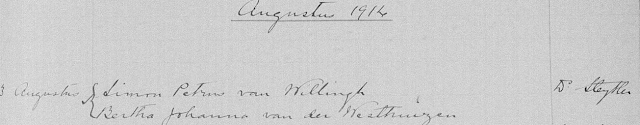 Augustus 1914
3 Augustus { Simon Petrus van Willingh Ds Steytler
Bertha Johanna van der Westhuizen